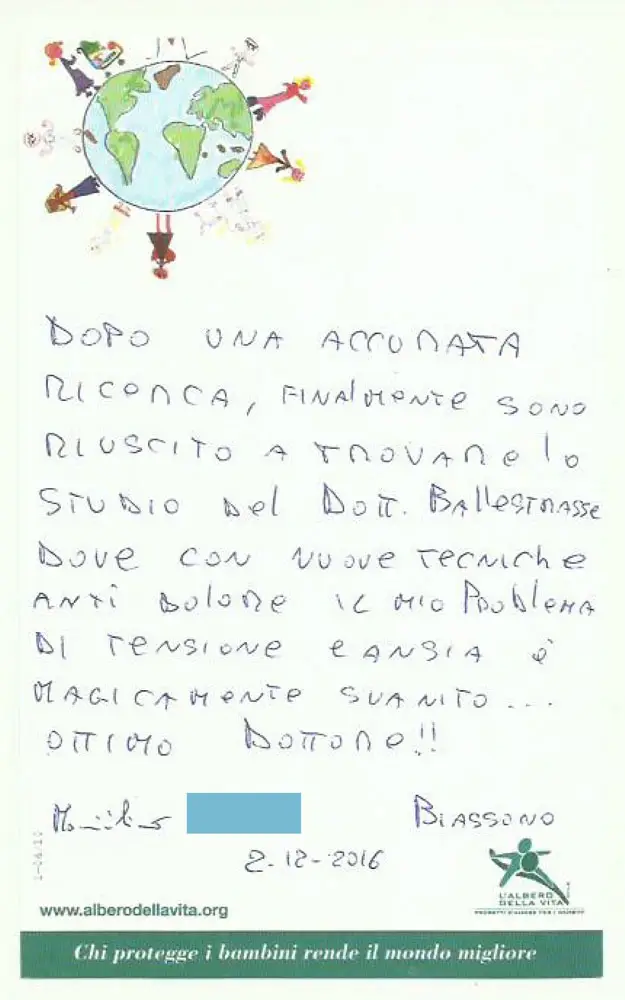 DOPO UNA ACCURATA
RICERCA, FINALMENTE SONO
RIUSCITO A TROVARE lo
STUDIO Del DOTT. BAllESTRASSE
DOVE CON NUOVE TECNICHE
ANTI DOLORE IL MIO PROBLEMA
DI TENSIONE E ANSIA è
MAGICAMENTE SVANITO...
OTTIMO DOTTORE!!
BIASSONO
2-12-2016
L'ALBERO
DELLA VITA
www.alberodellavita.org
Chi protegge i bambini rende il mondo migliore